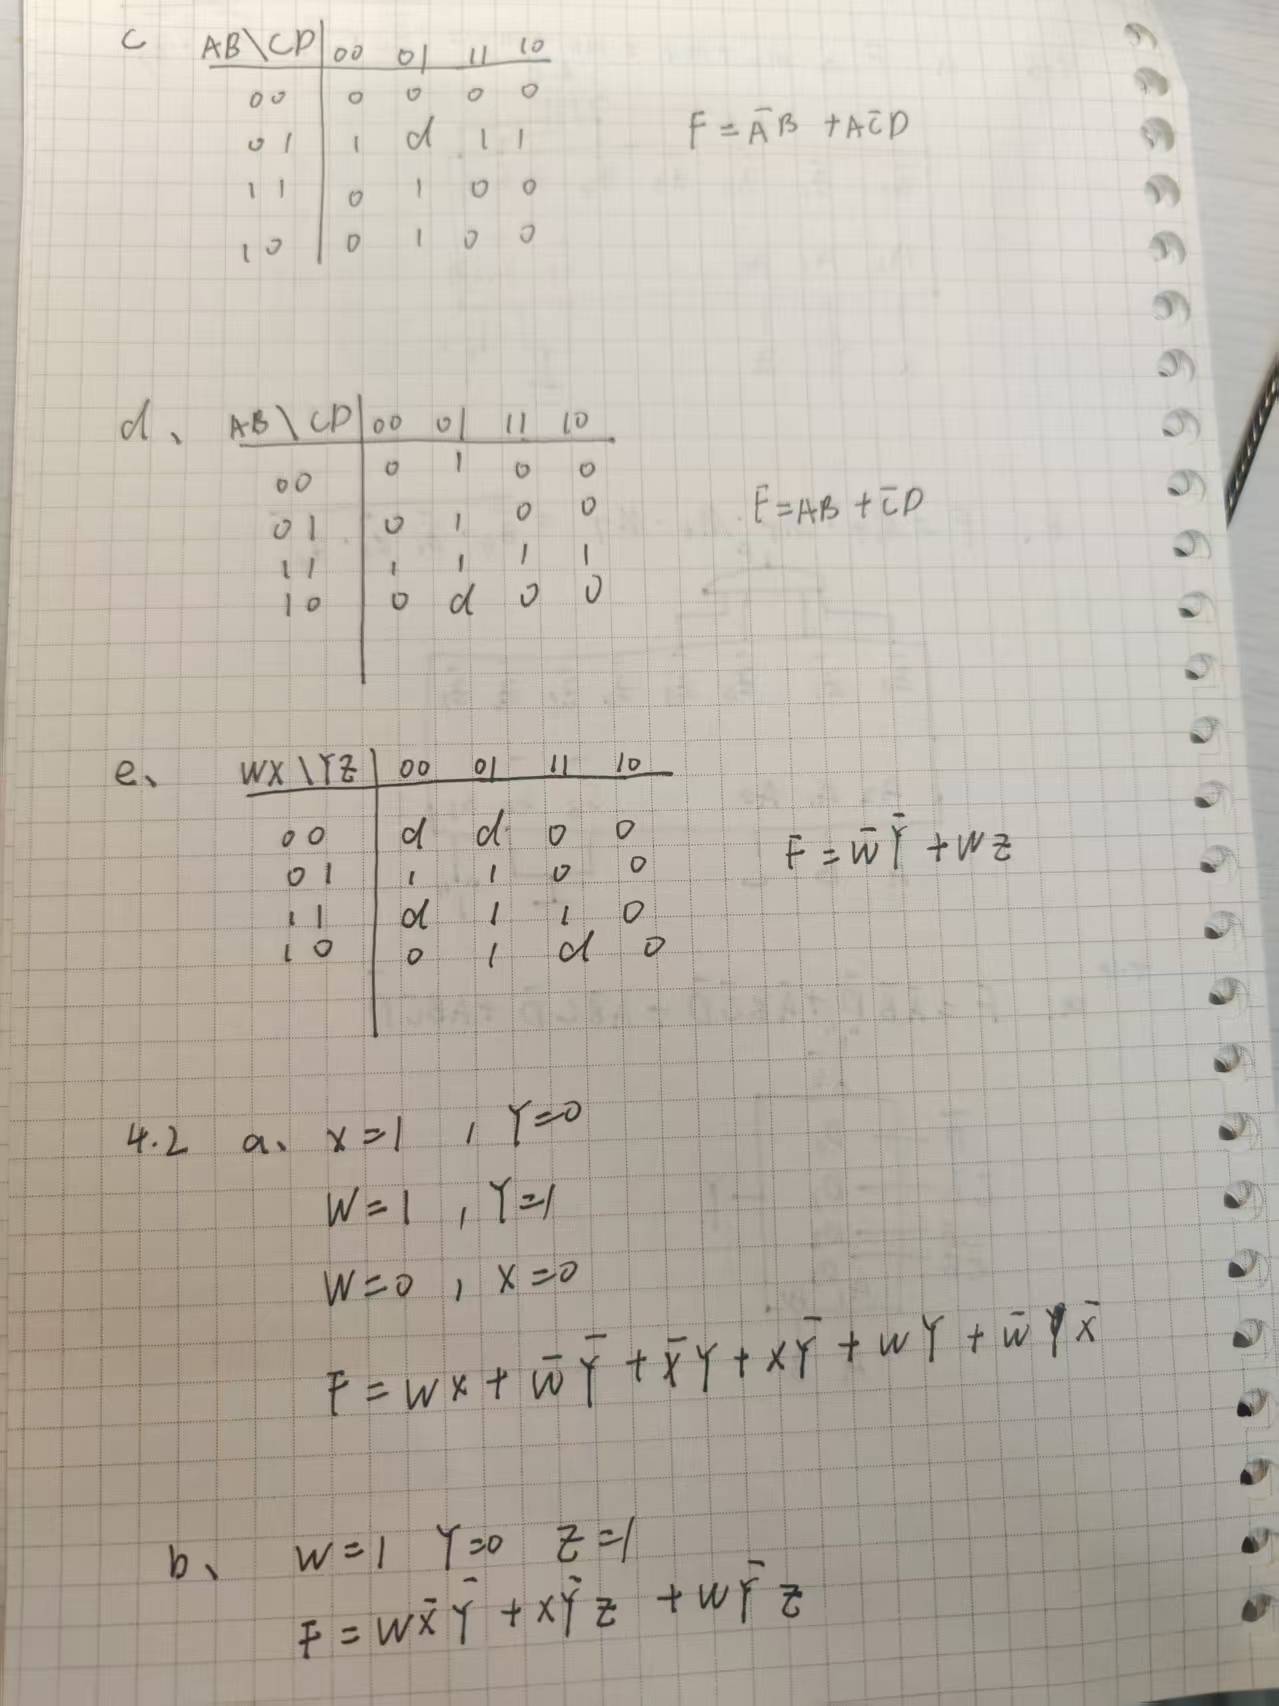 c AB\CD 00 01 11 10
00 0 0 0 0
01 1 d 1 1
11 0 1 0 0
10 0 1 0 0
F = A̅B + AC̅D
d、 AB\CD 00 01 11 10
00 0 1 0 0
01 0 1 0 0
11 1 1 1 1
10 0 d 0 0
F = AB + C̅D
e、 WX\YZ 00 01 11 10
00 d d 0 0
01 1 1 0 0
11 d 1 1 0
10 0 1 d 0
F = W̅Y̅ + WZ
4.2 a、 X=1 , Y=0
W=1 , Y=1
W=0 , X=0
F = WX + W̅Y̅ + X̅Y + XY̅ + WY + W̅YX̅
b、 W=1 Y=0 Z=1
F = WX̅Y̅ + XY̅Z + WY̅Z